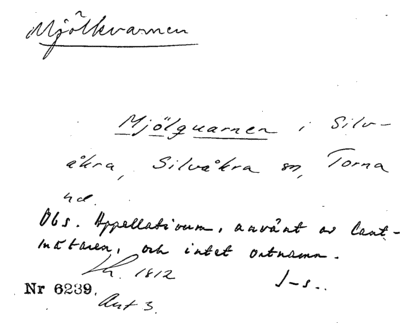 Mjölkvarnen
Mjölquarnen i Silv-
åkra, Silvåkra sn, Torna
hd.
Obs. Appellativum, använt av lant-
mätaren, och intet ortnamn.
Lh. 1812 J-s..
Nr 6239.
Akt 3.